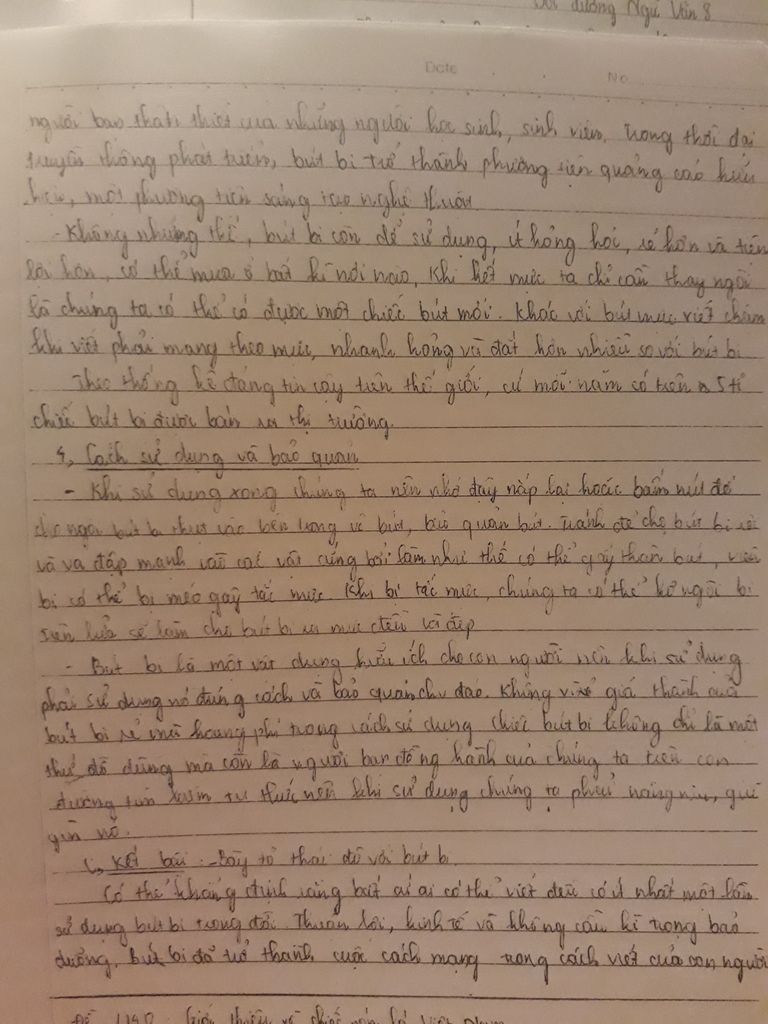 Bồi dưỡng Ngữ Văn 8
Date No
người bạn thân thiết của những người học sinh, sinh viên. Trong thời đại
truyền thông phát triển, bút bi trở thành phương tiện quảng cáo hữu
hiệu, một phương tiện sáng tạo nghệ thuật
- Không những thế, bút bi còn dể sử dụng, ít hỏng hóc, rẻ hơn và tiện
lời hơn, có thể mua ở bất kì nơi nào, khi hết mực ta chỉ cần thay ngòi
là chúng ta có thể có được một chiếc bút mới. Khác với bút mực viết chấm
khi viết phải mang theo mực, nhanh hỏng và đắt hơn nhiều so với bút bi
Theo thống kê đáng tin cậy trên thế giới, cứ mỗi năm có trên 5 tỉ
chiếc bút bi được bán ra thị trường.
4, Cách sử dụng và bảo quản
- Khi sử dụng xong chúng ta nên nhớ đậy nắp lại hoặc bấm nút để
cho ngòi bút bi thụt vào bên trong vỏ bút, bảo quản bút. Tránh để cho bút bi rơi
và va đập mạnh với các vật cứng bởi làm như thế có thể gãy thân bút, viên
bi có thể bị méo gây tắc mực. Khi bị tắc mực, chúng ta có thể hơ ngòi bi
trên lửa sẽ làm cho bút bi ra mực đều và đẹp
- Bút bi là một vật dụng hữu ích cho con người nên khi sử dụng
phải sử dụng nó đúng cách và bảo quản chu đáo. Không vì giá thành của
bút bi rẻ mà hoang phí trong cách sử dụng chiếc bút bi không chỉ là một
thứ đồ dùng mà còn là người bạn đồng hành của chúng ta trên con
đường tìm kiếm tri thức nên khi sử dụng chúng ta phải nâng niu, giữ
gìn nó.
C, Kết bài: - Bày tỏ thái độ với bút bi
Có thể khẳng định rằng bất cứ ai có thể viết đều có ít nhất một lần
sử dụng bút bi trong đời. Thuận lợi, kinh tế và không cầu kì trong bảo
dưỡng, bút bi đã trở thành cuộc cách mạng trong cách viết của con người
Giới thiệu về chiếc nón lá Việt Nam